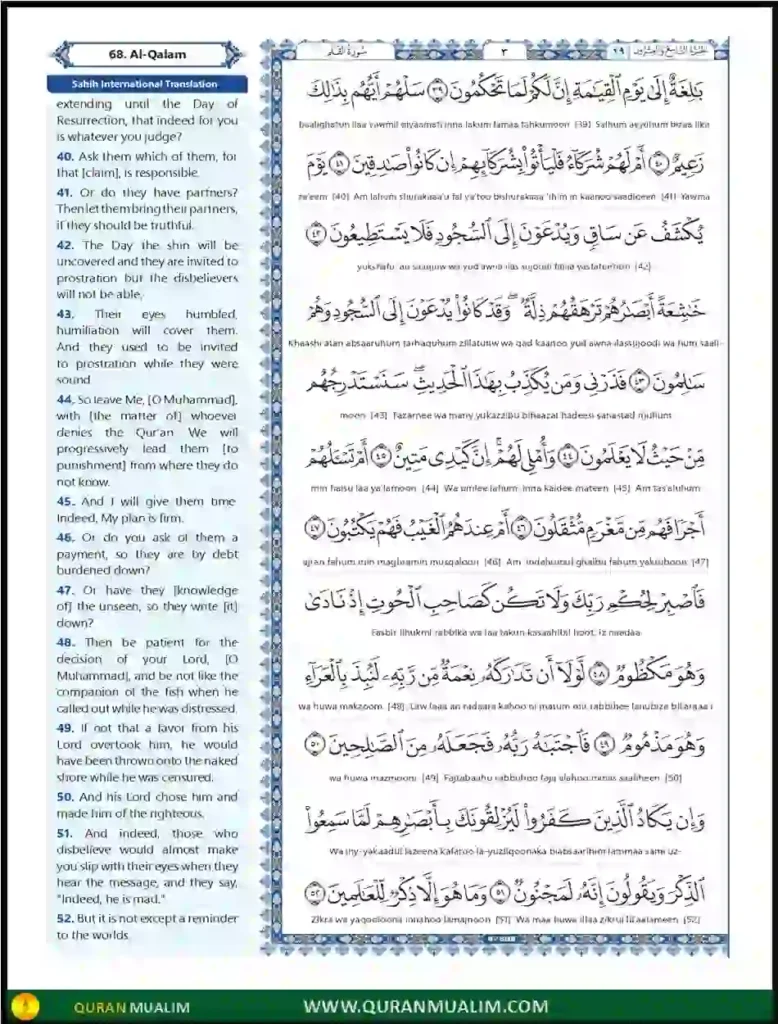 68. Al-Qalam
Sahih International Translation
extending until the Day of
Resurrection, that indeed for you
is whatever you judge?
40. Ask them which of them, for
that [claim], is responsible.
41. Or do they have partners?
Then let them bring their partners,
if they should be truthful.
42. The Day the shin will be
uncovered and they are invited to
prostration but the disbelievers
will not be able,
43. Their eyes humbled,
humiliation will cover them.
And they used to be invited
to prostration while they were
sound.
44. So leave Me, [O Muhammad],
with [the matter of] whoever
denies the Qur'an. We will
progressively lead them [to
punishment] from where they do
not know.
45. And I will give them time.
Indeed, My plan is firm.
46. Or do you ask of them a
payment, so they are by debt
burdened down?
47. Or have they [knowledge
of] the unseen, so they write [it]
down?
48. Then be patient for the
decision of your Lord, [O
Muhammad], and be not like the
companion of the fish when he
called out while he was distressed.
49. If not that a favor from his
Lord overtook him, he would
have been thrown onto the naked
shore while he was censured.
50. And his Lord chose him and
made him of the righteous.
51. And indeed, those who
disbelieve would almost make
you slip with their eyes when they
hear the message, and they say,
"Indeed, he is mad."
52. But it is not except a reminder
to the worlds.
سورة القلم
٣
٢٩
بَـٰلِغَةٌ إِلَىٰ يَوْمِ ٱلْقِيَـٰمَةِ إِنَّ لَكُمْ لَمَا تَحْكُمُونَ ٣٩ سَلْهُمْ أَيُّهُم بِذَٰلِكَ
baalighatun ilaa yawmil qiyaamati inna lakum lamaa tahkumoon [39] Salhum ayyuhum bizaa lika
زَعِيمٌ ٤٠ أَمْ لَهُمْ شُرَكَآءُ فَلْيَأْتُوا۟ بِشُرَكَآئِهِمْ إِن كَانُوا۟ صَـٰدِقِينَ ٤١ يَوْمَ
za'eem [40] Am lahum shurakaaa'u fal ya'too bishurakaaa 'ihim in kaanoo saadiqeen [41] Yawma
يُكْشَفُ عَن سَاقٍ وَيُدْعَوْنَ إِلَى ٱلسُّجُودِ فَلَا يَسْتَطِيعُونَ ٤٢
yukshafu 'an saaqinw wa yud'awna ilas sujoodi falaa yastatee'oon [42]
خَـٰشِعَةً أَبْصَـٰرُهُمْ تَرْهَقُهُمْ ذِلَّةٌ ۖ وَقَدْ كَانُوا۟ يُدْعَوْنَ إِلَى ٱلسُّجُودِ وَهُمْ
Khaashi'atan absaaruhum tarhaquhum zillatunw wa qad kaanoo yud'awna ilassujoodi wa hum saali-
سَـٰلِمُونَ ٤٣ فَذَرْنِى وَمَن يُكَذِّبُ بِهَـٰذَا ٱلْحَدِيثِ ۖ سَنَسْتَدْرِجُهُم
moon [43] Fazarnee wa many yukazzibu bihaazal hadeesi sanastad rijuhum
مِّنْ حَيْثُ لَا يَعْلَمُونَ ٤٤ وَأُمْلِى لَهُمْ ۚ إِنَّ كَيْدِى مَتِينٌ ٤٥ أَمْ تَسْـَٔلُهُمْ
min haisu laa ya'lamoon [44] Wa umlee lahum; inna kaidee mateen [45] Am tas'aluhum
أَجْرًا فَهُم مِّن مَّغْرَمٍ مُّثْقَلُونَ ٤٦ أَمْ عِندَهُمُ ٱلْغَيْبُ فَهُمْ يَكْتُبُونَ ٤٧
ajran fahum min maghramin musqaloon [46] Am 'indahumul ghaibu fahum yaktuboon [47]
فَٱصْبِرْ لِحُكْمِ رَبِّكَ وَلَا تَكُن كَصَاحِبِ ٱلْحُوتِ إِذْ نَادَىٰ
Fasbir lihukmi rabbika wa laa takun kasaahibil hoot; iz naadaa
وَهُوَ مَكْظُومٌ ٤٨ لَّوْلَآ أَن تَدَٰرَكَهُۥ نِعْمَةٌ مِّن رَّبِّهِۦ لَنُبِذَ بِٱلْعَرَآءِ
wa huwa makzoom [48] Law laaa an tadaara kahoo ni'matum mir rabbihee lanubiza bil'araaa'i
وَهُوَ مَذْمُومٌ ٤٩ فَٱجْتَبَـٰهُ رَبُّهُۥ فَجَعَلَهُۥ مِنَ ٱلصَّـٰلِحِينَ ٥٠
wa huwa mazmoom [49] Fajtabaahu rabbuhoo faja'alahoo minas saaliheen [50]
وَإِن يَكَادُ ٱلَّذِينَ كَفَرُوا۟ لَيُزْلِقُونَكَ بِأَبْصَـٰرِهِمْ لَمَّا سَمِعُوا۟
Wa iny-yakaadul lazeena kafaroo la-yuzliqoonaka biabsaarihim lammaa sami'uz-
ٱلذِّكْرَ وَيَقُولُونَ إِنَّهُۥ لَمَجْنُونٌ ٥١ وَمَا هُوَ إِلَّا ذِكْرٌ لِّلْعَـٰلَمِينَ ٥٢
Zikra wa yaqooloona innahoo lamajnoon [51] Wa maa huwa illaa zikrul lil'aalameen [52]
QURAN MUALIM
WWW.QURANMUALIM.COM